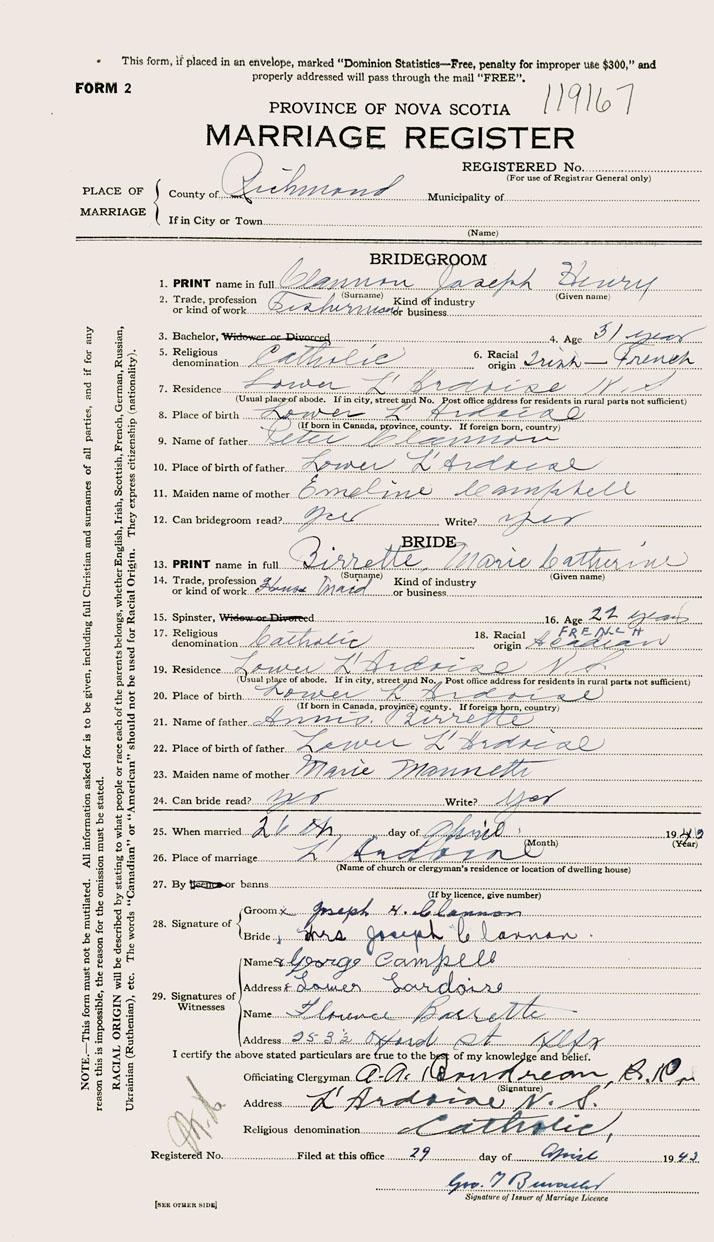 This form, if placed in an envelope, marked "Dominion Statistics—Free, penalty for improper use $300," and
properly addressed will pass through the mail "FREE".
FORM 2
119167
PROVINCE OF NOVA SCOTIA
MARRIAGE REGISTER
REGISTERED No.
(For use of Registrar General only)
PLACE OF MARRIAGE
County of Richmond Municipality of
If in City or Town
(Name)
BRIDEGROOM
1. PRINT name in full Clannon Joseph Henry
(Surname) (Given name)
2. Trade, profession or kind of work Fisherman Kind of industry or business
3. Bachelor, Widower or Divorced 4. Age 31 year
5. Religious denomination Catholic 6. Racial origin Irish — French
7. Residence Lower L'Ardoise N.S
(Usual place of abode. If in city, street and No. Post office address for residents in rural parts not sufficient)
8. Place of birth Lower L'Ardoise
(If born in Canada, province, county. If foreign born, country)
9. Name of father Peter Clannon
10. Place of birth of father Lower L'Ardoise
11. Maiden name of mother Emeline Campbell
12. Can bridegroom read? yes Write? yes
BRIDE
13. PRINT name in full Birrette, Marie Catherine
(Surname) (Given name)
14. Trade, profession or kind of work House Maid Kind of industry or business
15. Spinster, Widow or Divorced 16. Age 22 years
17. Religious denomination Catholic 18. Racial origin FRENCH Acadian
19. Residence Lower L'Ardoise N.S.
(Usual place of abode. If in city, street and No. Post office address for residents in rural parts not sufficient)
20. Place of birth Lower L'Ardoise
(If born in Canada, province, county. If foreign born, country)
21. Name of father Birrette
22. Place of birth of father Lower L'Ardoise
23. Maiden name of mother Marie Mannette
24. Can bride read? yes Write? yes
25. When married 26th day of April 19
(Month) (Year)
26. Place of marriage L'Ardoise
(Name of church or clergyman's residence or location of dwelling house)
27. By licence or banns
(If by licence, give number)
28. Signature of
Groom x Joseph H. Clannon
Bride Mrs Joseph Clannon.
29. Signatures of Witnesses
Name George Campell
Address Lower Lardoise
Name Florence Barrette
Address Oxford st Hlfx
I certify the above stated particulars are true to the best of my knowledge and belief.
Officiating Clergyman A.A. Boudreau,
(Signature)
Address L'Ardoise N.S.
Religious denomination Catholic,
Registered No. Filed at this office 29 day of April 1943
Geo. T
Signature of Issuer of Marriage Licence
[SEE OTHER SIDE]
NOTE.—This form must not be mutilated. All information asked for is to be given, including full Christian and surnames of all parties, and if for any
reason this is impossible, the reason for the omission must be stated.
RACIAL ORIGIN will be described by stating to what people or race each of the parents belongs, whether English, Irish, Scottish, French, German, Russian,
Ukrainian (Ruthenian), etc. The words "Canadian" or "American" should not be used for Racial Origin. They express citizenship (nationality).